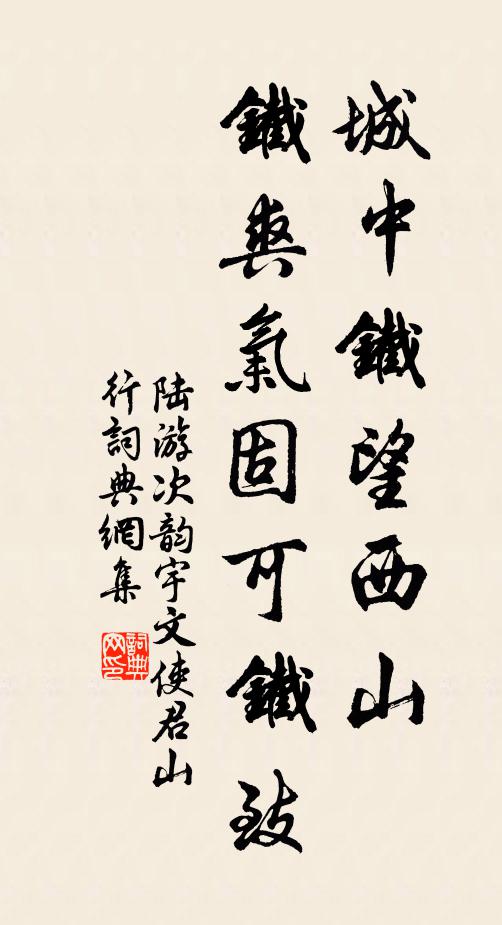 城中鐵望西山
鐵爽氣固可鐵致
陆游次韵宇文使君山
行詞典網集
詞典
网印